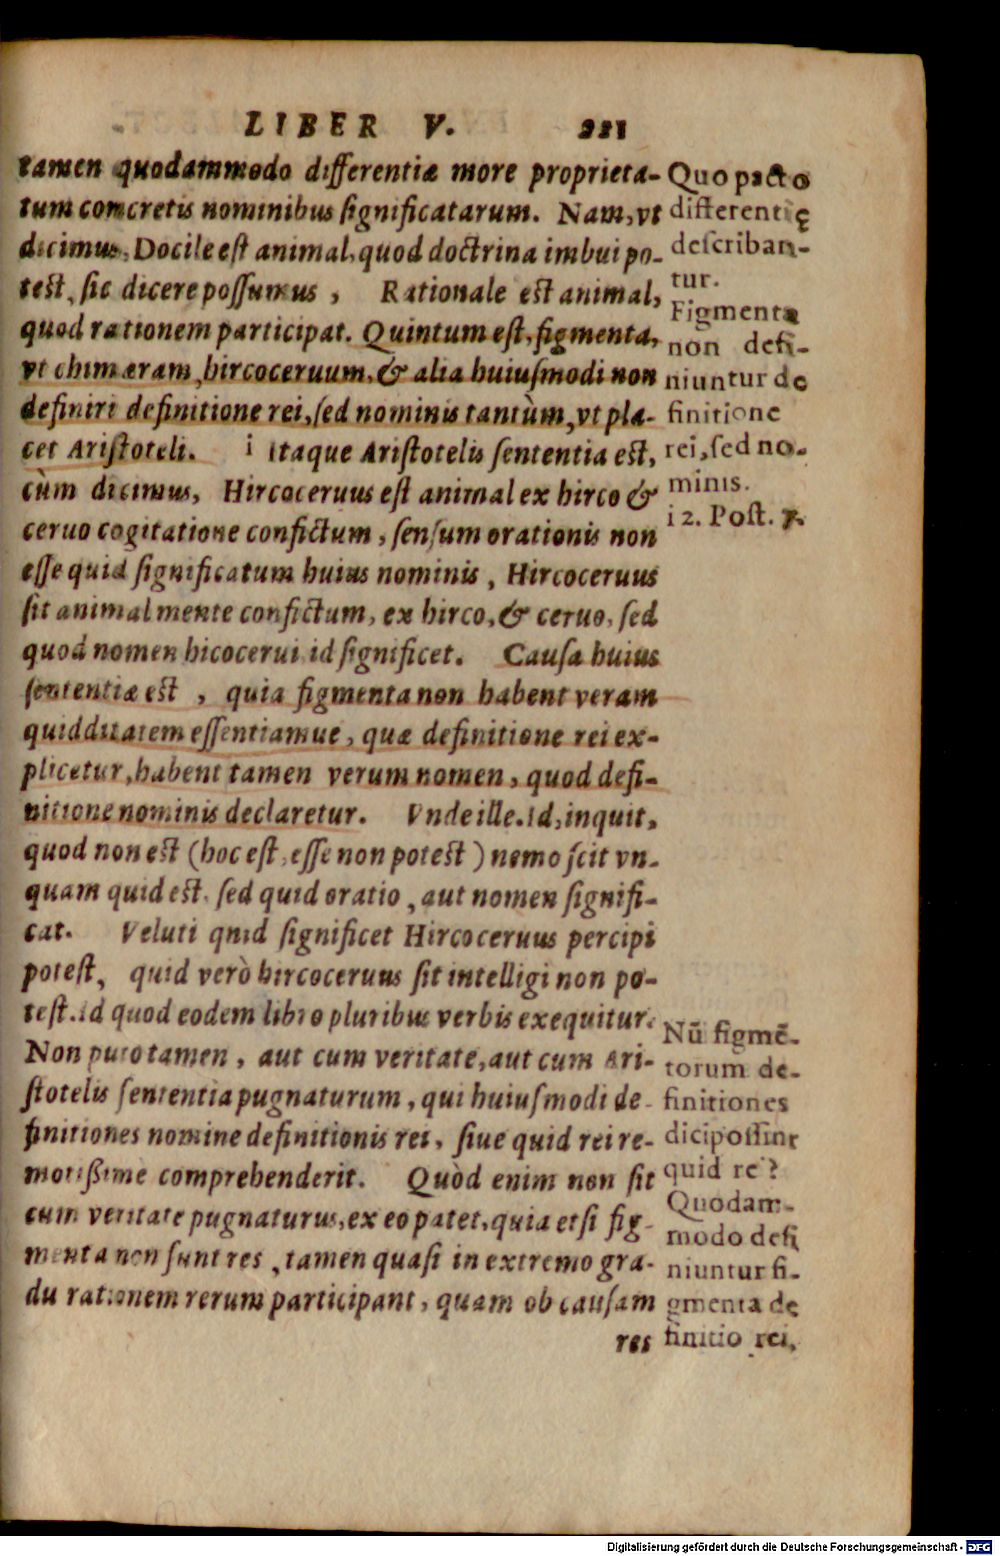 LIBER V. 221
tamen quodammodo differentiæ more proprieta-
tum concretis nominibus significatarum. Nam, vt
dicimus, Docile est animal, quod doctrina imbui po-
test, sic dicere possumus, Rationale est animal,
quod rationem participat. Quintum est, figmenta,
vt chimæram, hircoceruum, & alia huiusmodi non
definiri definitione rei, sed nominis tantùm, vt pla-
cet Aristoteli. i Itaque Aristotelis sententia est,
cùm dicimus, Hircoceruus est animal ex hirco &
ceruo cogitatione confictum, sensum orationis non
esse quid significatum huius nominis, Hircoceruus
sit animal mente confictum, ex hirco, & ceruo, sed
quod nomen hicocerui id significet. Causa huius
sententiæ est, quia figmenta non habent veram
quidditatem essentiamue, quæ definitione rei ex-
plicetur, habent tamen verum nomen, quod defi-
nitione nominis declaretur. Vnde ille. Id, inquit,
quod non est (hoc est, esse non potest) nemo scit vn-
quam quid est, sed quid oratio, aut nomen signifi-
cat. Veluti quid significet Hircoceruus percipi
potest, quid verò hircoceruus sit intelligi non po-
test. id quod eodem libro pluribus verbis exequitur.
Non puto tamen, aut cum veritate, aut cum Ari-
stotelis sententia pugnaturum, qui huiusmodi de-
finitiones nomine definitionis rei, siue quid rei re-
motißime comprehenderit. Quòd enim non sit
cum veritate pugnaturus, ex eo patet, quia etsi fig-
menta non sunt res, tamen quasi in extremo gra-
du rationem rerum participant, quam ob causam
res
Quo pacto
differentię
describan-
tur.
Figmenta
non defi-
niuntur de
finitione
rei, sed no-
minis.
i 2. Post. 7.
Nū figmē-
torum de-
finitiones
dici possint
quid rei?
Quodam-
modo defi
niuntur fi-
gmenta de
finitio rei,
Digitalisierung gefördert durch die Deutsche Forschungsgemeinschaft - DFG